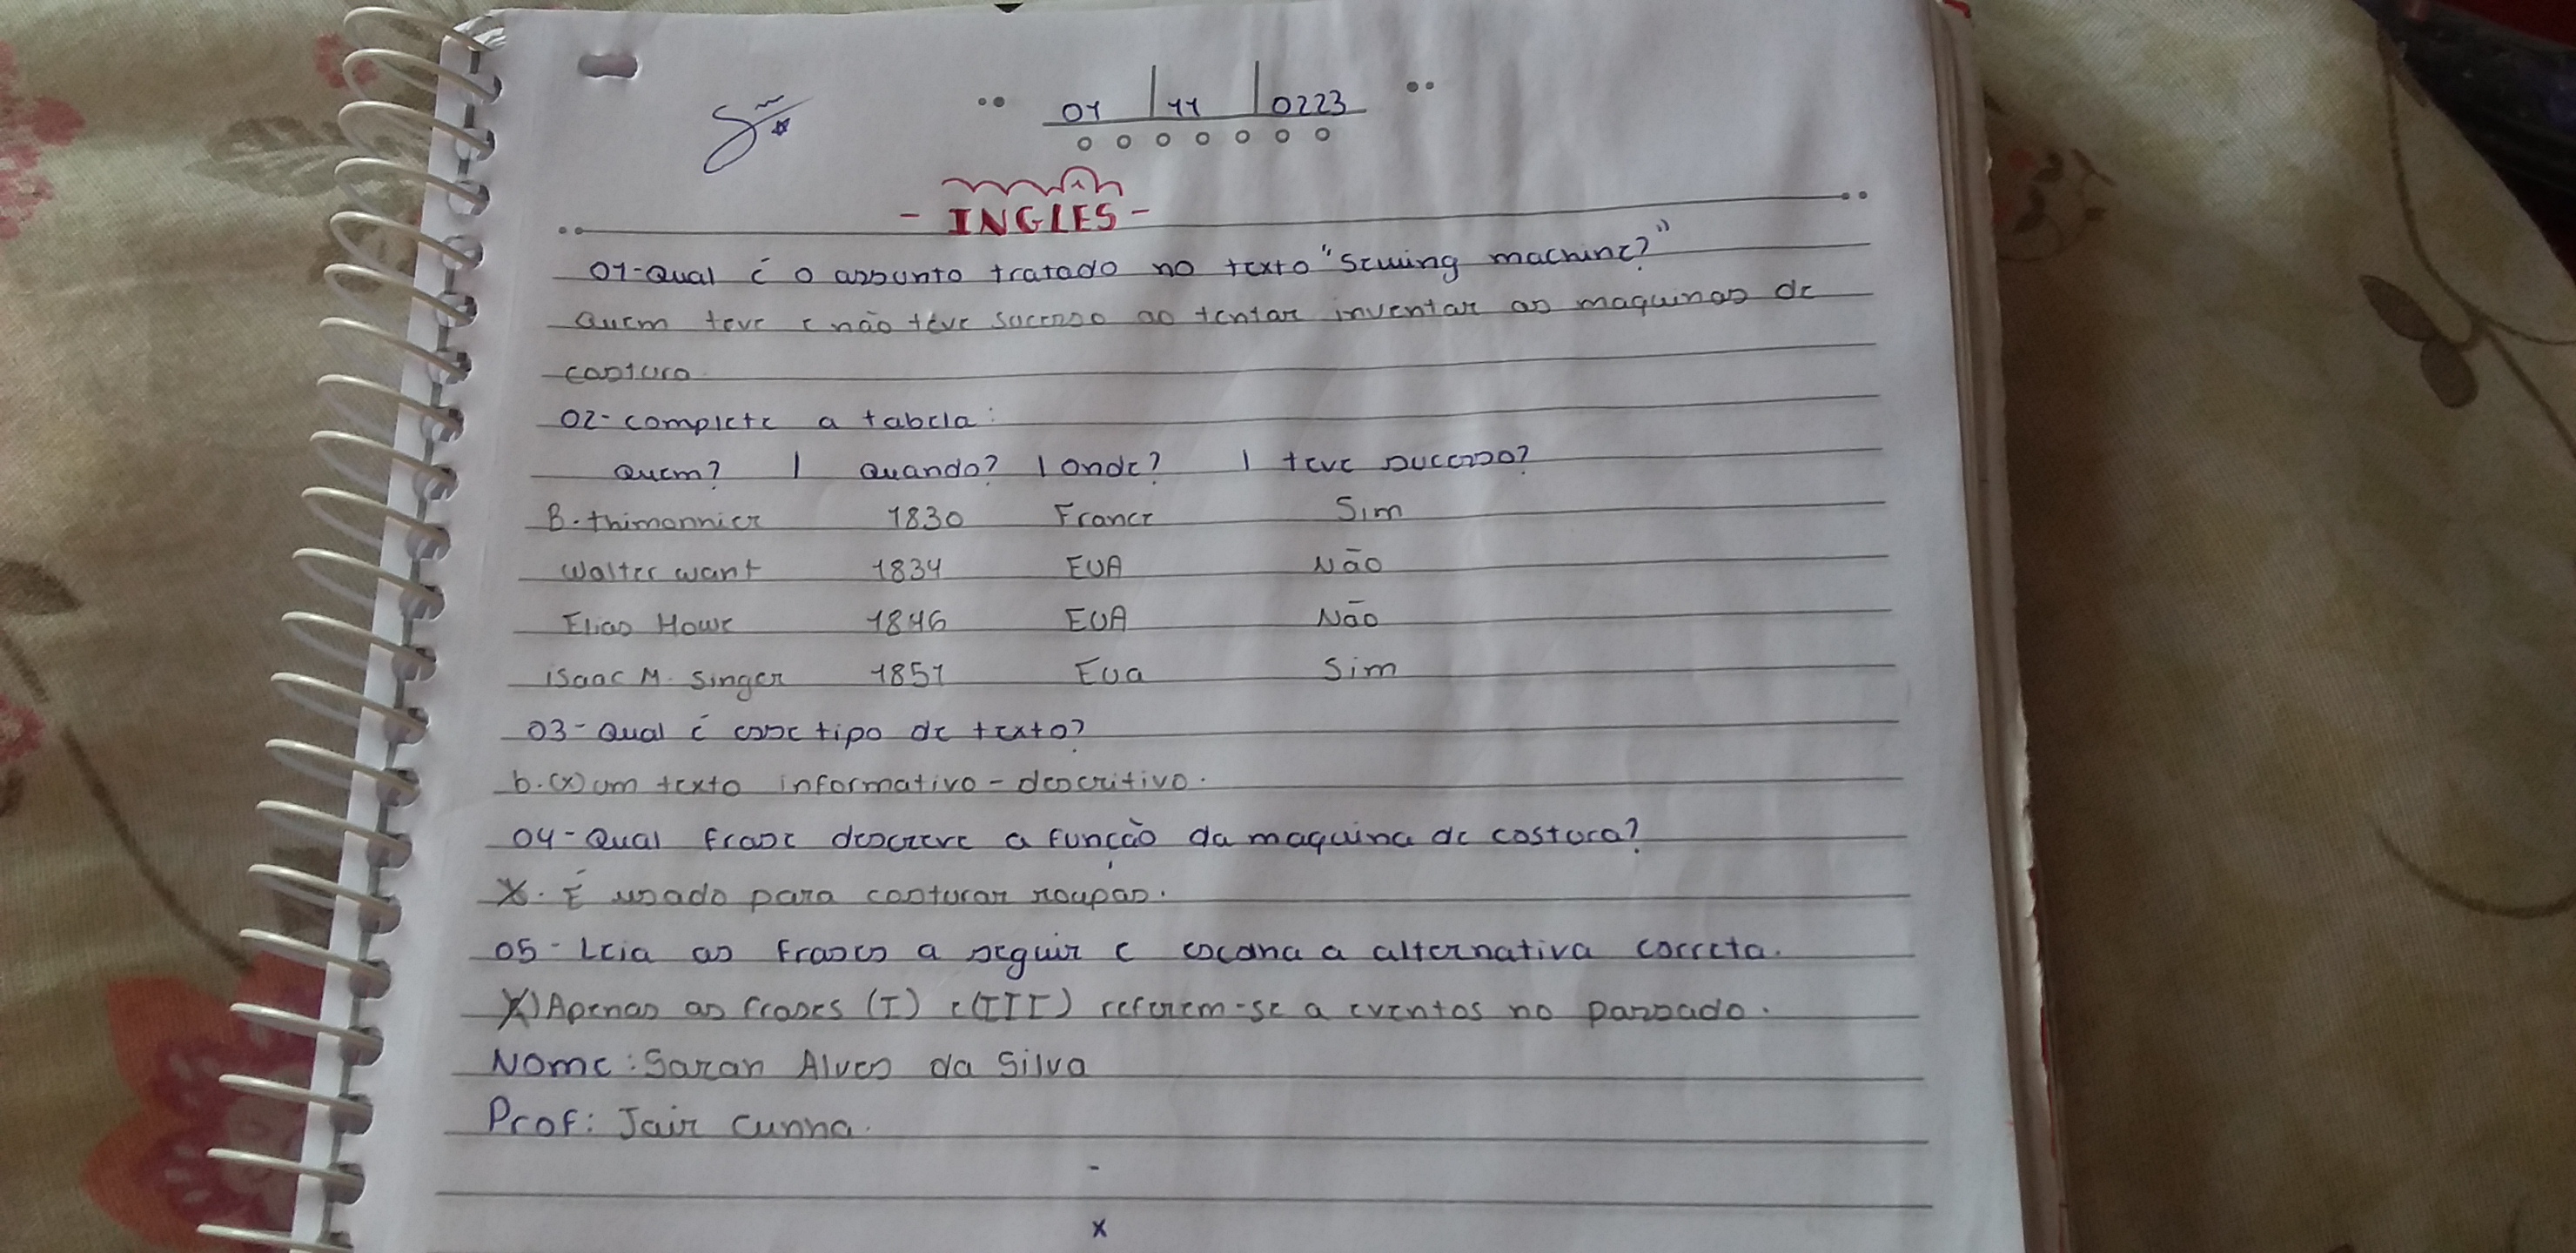 01 11 0223
- INGLES -
01-Qual é o assunto tratado no texto "Sewing machine?"
Quem teve e não teve sucesso ao tentar inventar as maquinas de
costura
02- complete a tabela:
Quem? | quando? | onde? | teve sucesso?
B. thimonnier 1830 France Sim
Walter want 1834 EUA Não
Elias Howe 1846 EUA Não
isaac M. Singer 1851 Eua Sim
03- Qual é esse tipo de texto?
b. (x) um texto informativo - descritivo.
04- Qual frase descreve a função da maquina de costura?
X. É usado para costurar roupas.
05- Leia as frases a seguir e escolha a alternativa correta.
X) Apenas as frases (I) e (III) referem-se a eventos no passado.
Nome: Sarah Alves da Silva
Prof: Jair Cunha.
-
x